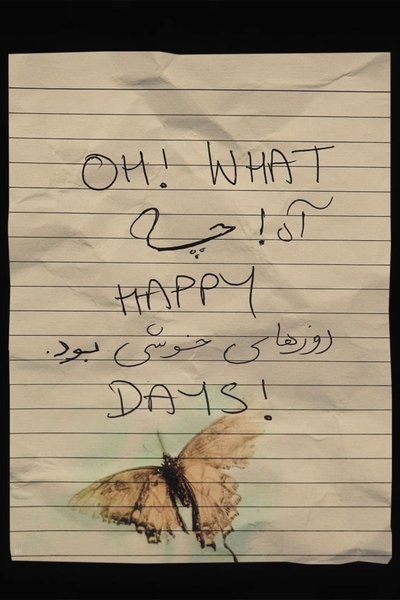 OH! WHAT
آه! چه
HAPPY
روزهای خوشی بود.
DAYS!